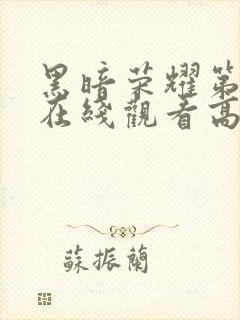 黑暗荣耀第
在线观看高
蘇振蘭